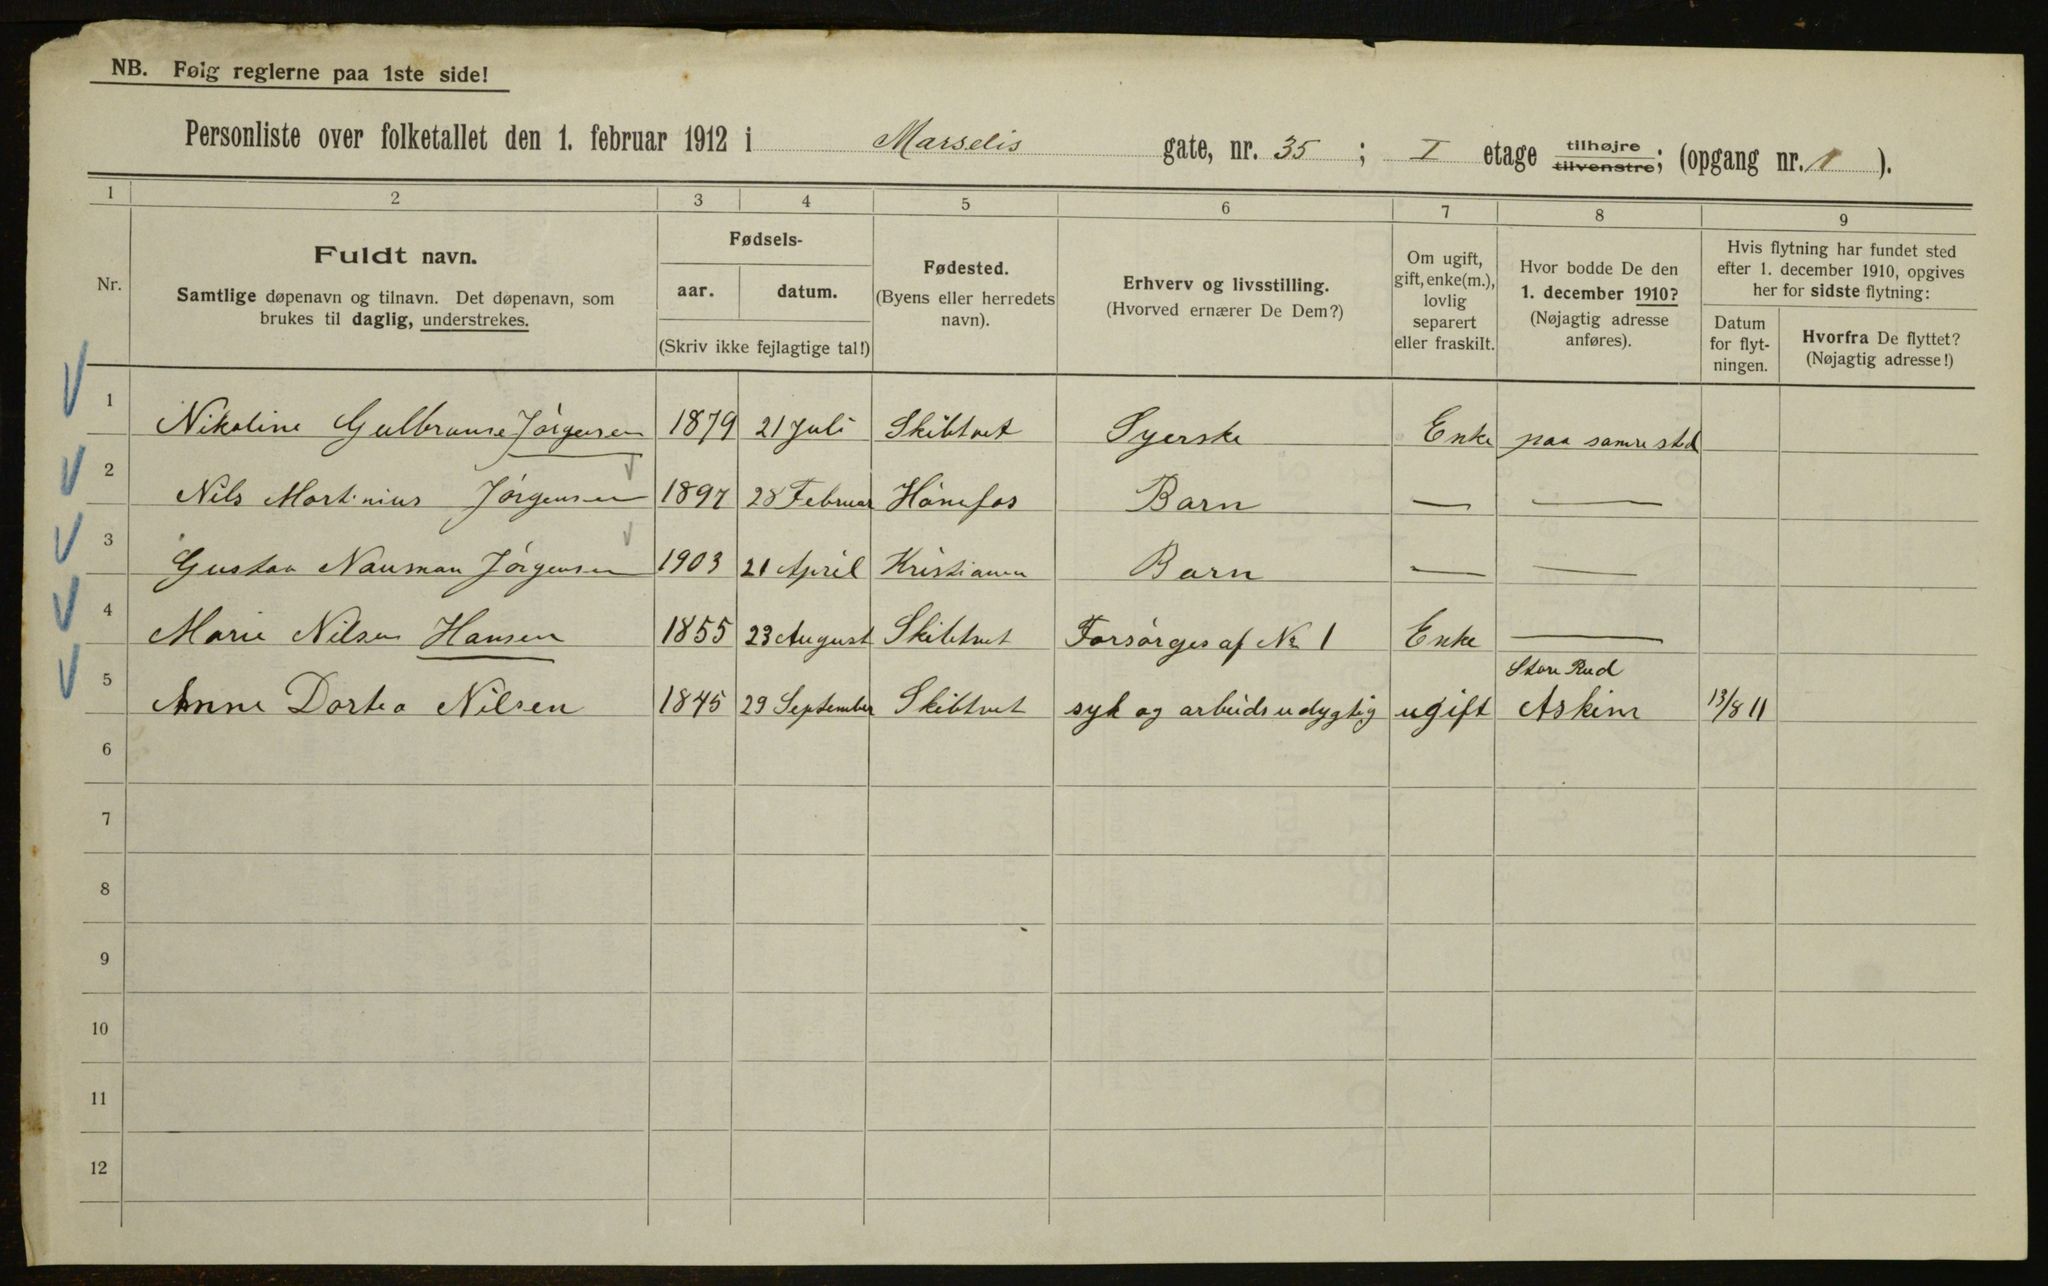 NB. Følg reglerne paa 1ste side!
Personliste over folketallet den 1. februar 1912 i Marselis gate, nr. 35 ; I etage tilhøjre tilvenstre; (opgang nr. 1 ).
1 2 3 4 5 6 7 8 9
Nr.
Fuldt navn.
Samtlige døpenavn og tilnavn. Det døpenavn, som
brukes til daglig, understrekes.
Fødsels-
aar. datum.
(Skriv ikke fejlagtige tal!)
Fødested.
(Byens eller herredets
navn).
Erhverv og livsstilling.
(Hvorved ernærer De Dem?)
Om ugift,
gift, enke(m.),
lovlig
separert
eller fraskilt.
Hvor bodde De den
1. december 1910?
(Nøjagtig adresse
anføres).
Hvis flytning har fundet sted
efter 1. december 1910, opgives
her for sidste flytning:
Datum
for flyt-
ningen.
Hvorfra De flyttet?
(Nøjagtig adresse!)
1 Nikoline Gulbranse Jørgensen 1879 21 Juli Skibtvet Syerske Enke paa samme sted
2 Nils Martinius Jørgensen 1897 28 Februar Hønefos Barn — —
3 Gustav Nauman Jørgensen 1903 21 April Kristiania Barn — —
4 Marie Nilsen Hansen 1855 23 August Skibtvet Forsørges af No 1 Enke —
5 Anne Dortea Nilsen 1845 29 September Skibtvet syk og arbeidsudygtig ugift Store Rud Askim 13/8 11
6
7
8
9
10
11
12